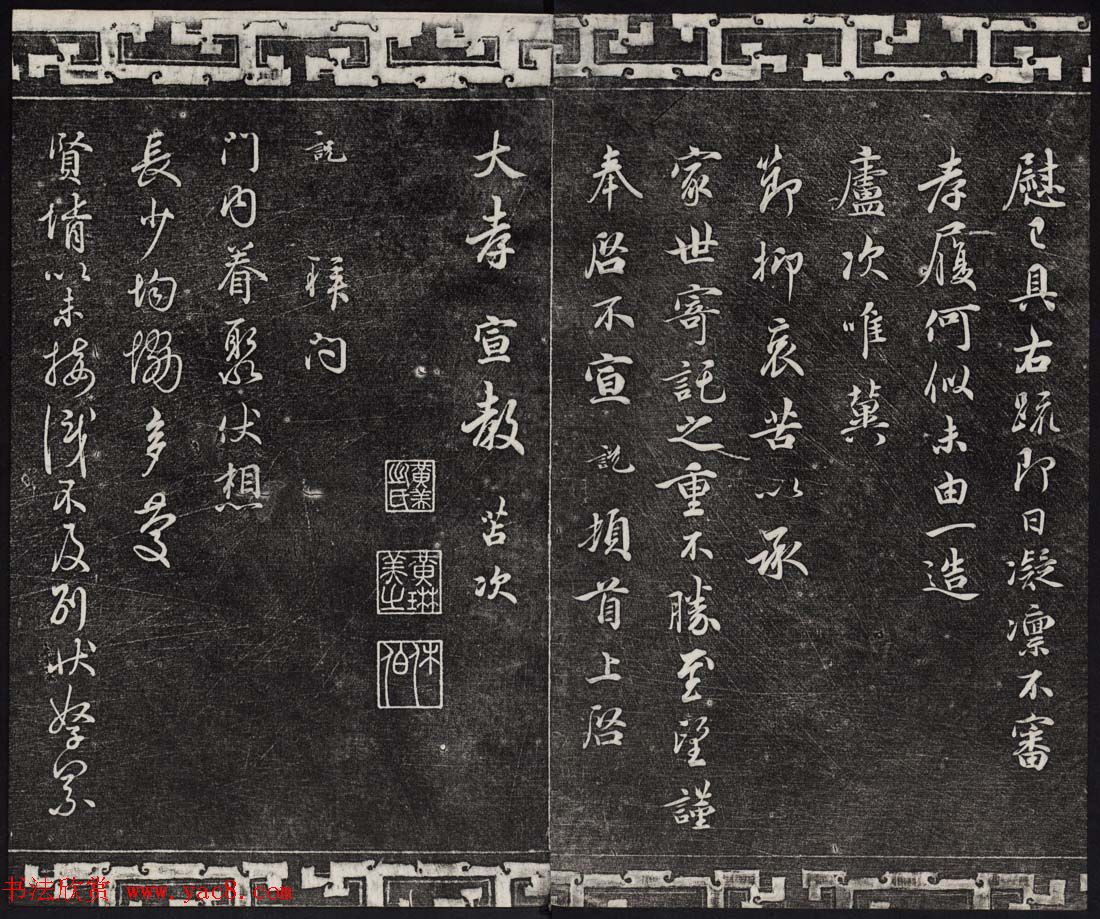 慰已具右疏即日凝凛不審
孝履何似未由一造
廬次唯冀
節抑哀苦以承
家世寄託之重不勝至望謹
奉啓不宣 說 頓首上啓
大孝宣教 苫次
黄美之氏
黄琳美之
休伯
說 拜問
門內眷聚伏想
長少均協多慶
賢壻以未接識不及別狀孥累
书法欣赏 www.yac8.com